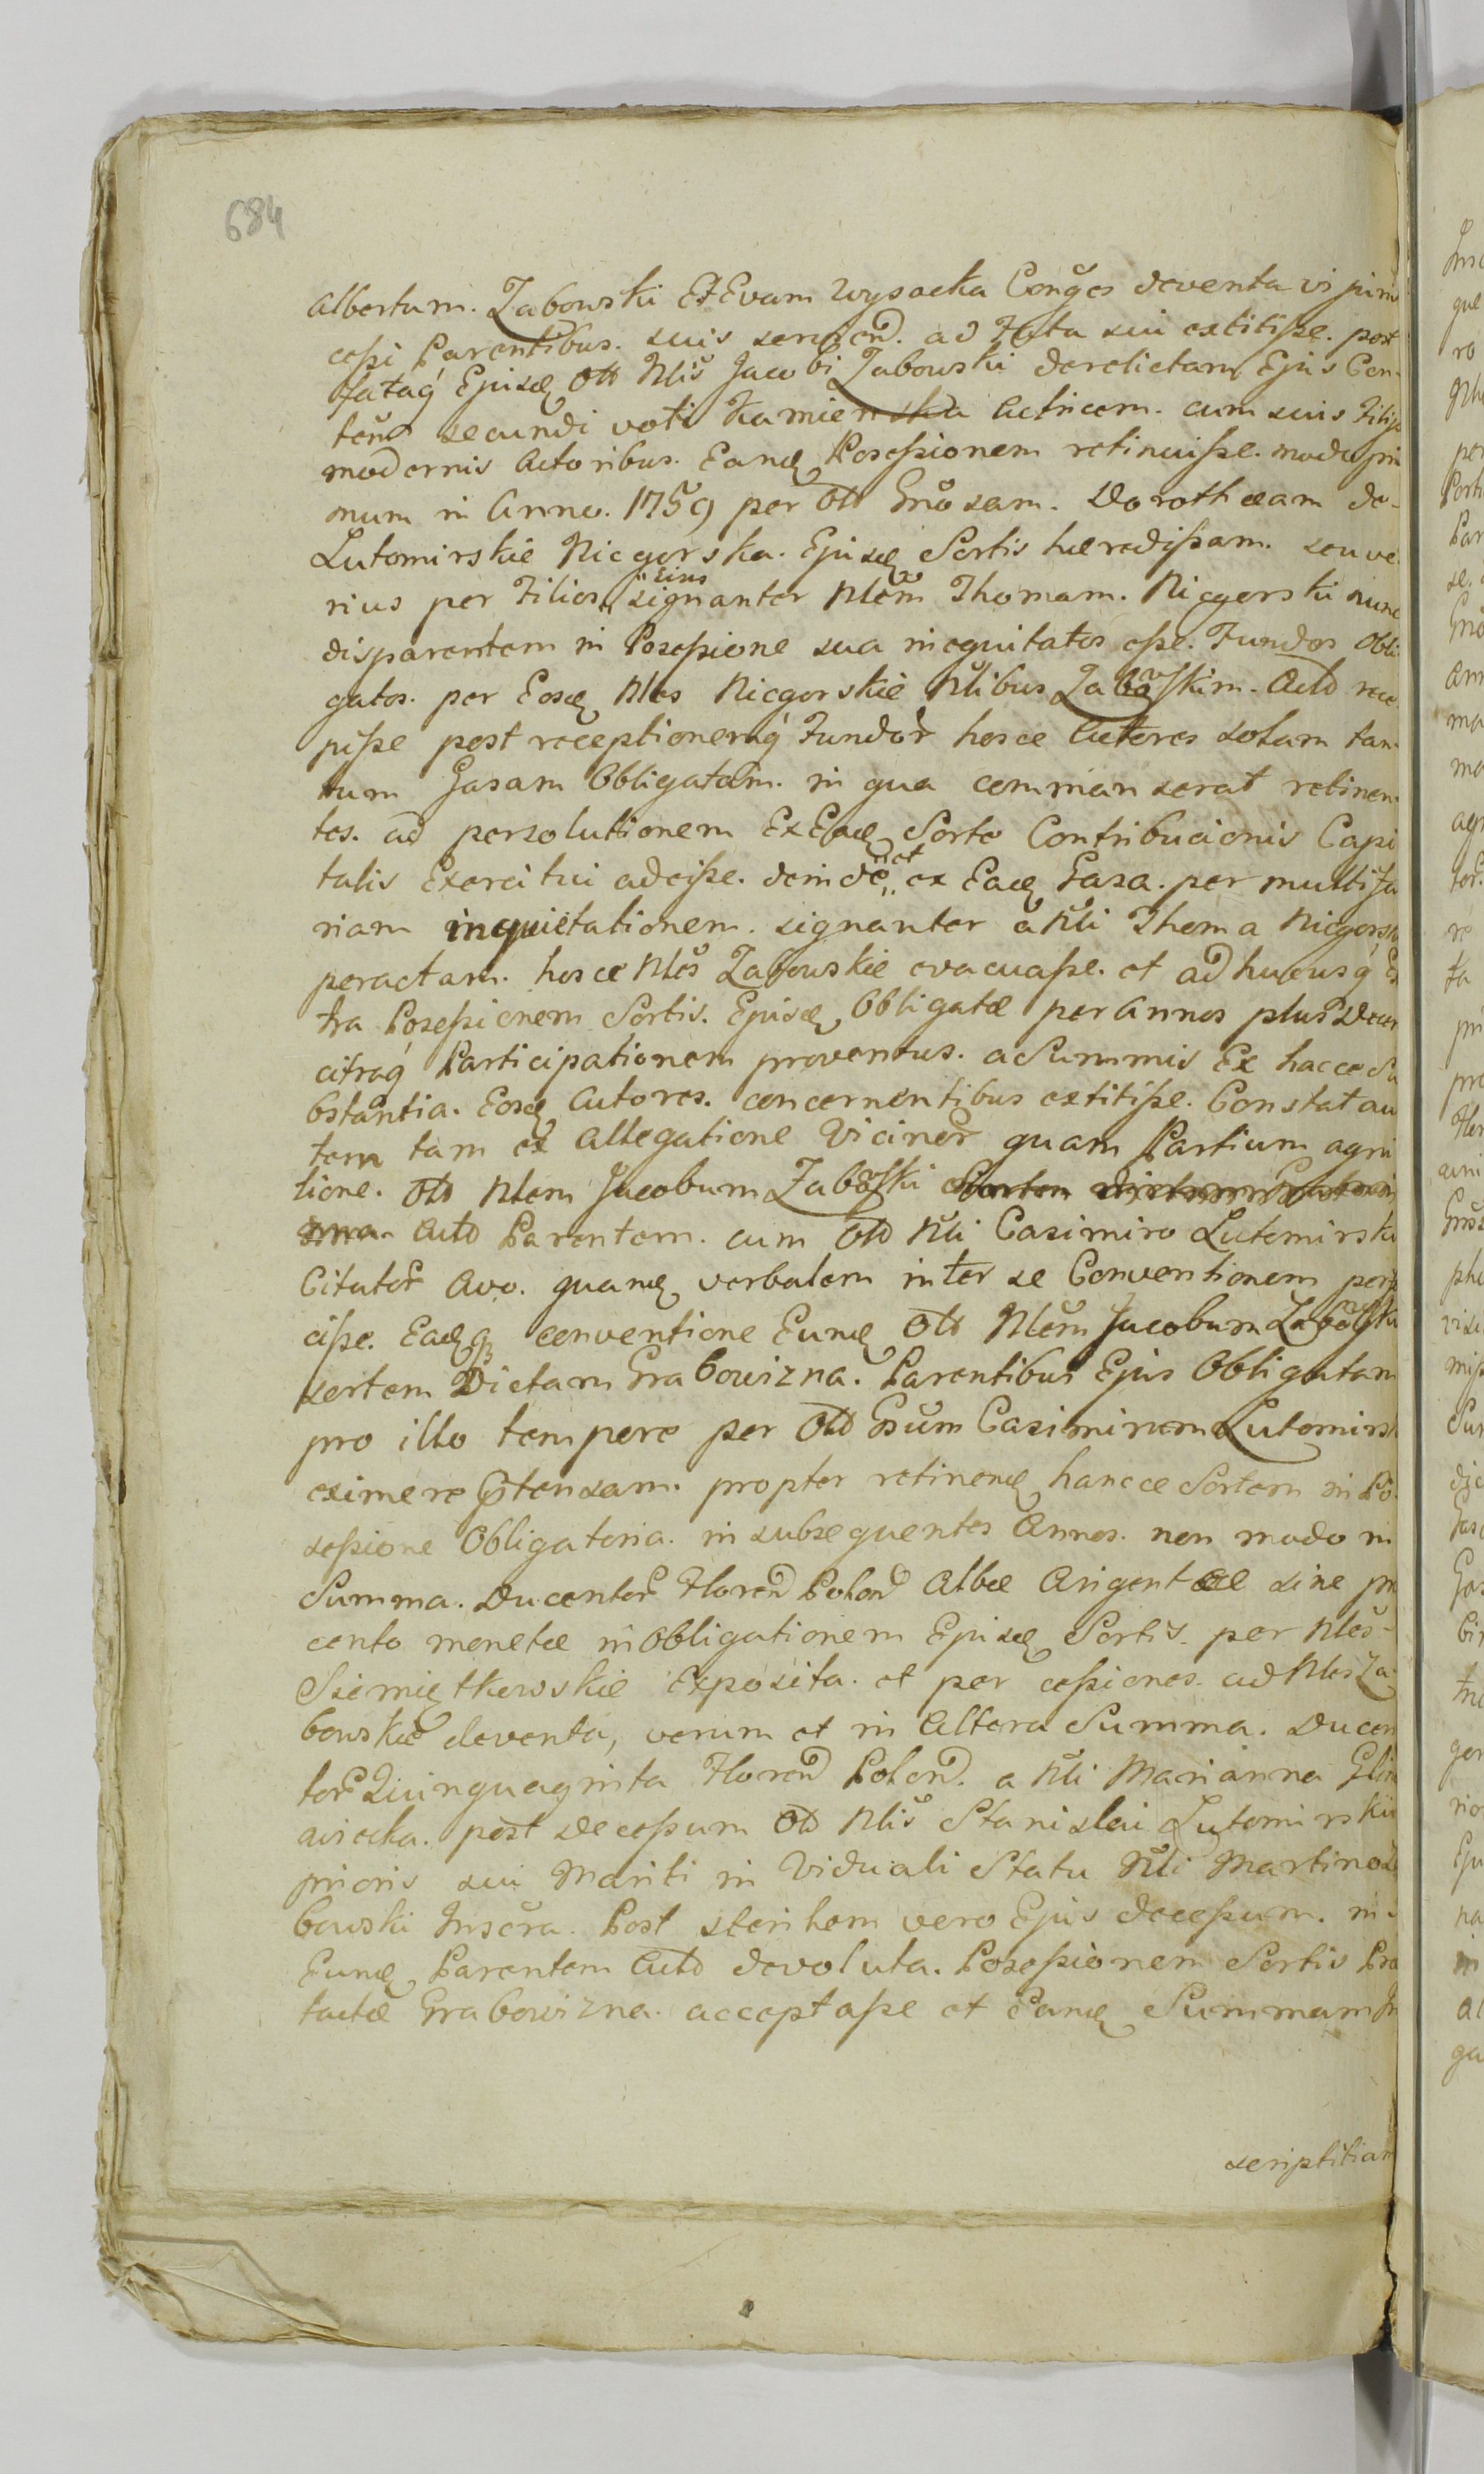 684
Albertum. Zabowski Et Evam Wysocka Conges deventa vi prim
cessi Parentibus. suis servien. ad Fata sui extitisse. post
fataq Ejusd Olt Nlis Jacobi Zabowski derelictam Ejus Con-
secundi voti Kamienska Actricem. cum suis Filijs
modernis Actoribus. Eand Possessionem retinuisse. modo pri
mum in Anno. 1759 per Olt Gnosam. Dorotheam de-
Lutomirskie Nicgorska. Ejusd Sortis hæredissam. seu ve
rius per Filios Eius signanter Nlem Thomam. Nicgorski nunc
disparentem in Possessione sua inequitatos esse. Fundos Obli
gatos. per Eosd Nles Nicgorskie Nlibus Zabowskim. Acto rece
pisse post receptionemq Fundor hosce Actores solam tan
tum Gasam Obligatam. in qua commanserat retinen
tes. ad persolutionem Ex Ead Sorte Contribucionis Capi
talis Exercitui adcisse. deinde et ex Ead Gasa. per multifa
riam inquietationem. signanter a Nli Thoma Nicgorski
peractam. hosce Nles Zabowskie evacuasse. et adhucusq Ex
tra Possessionem Sortis. Ejusd Obligatæ per Annos plus Decem
citraq Participationem proventus. a Summis Ex hacce Su
bstantia. Eosd Actores. concernentibus extitisse. Constat au
tem tam ex Allegatione Vicinor quam Partium agni
tione. Olt Nlem Jacobum Zabowski
Acto Parentem. cum Olt Nli Casimiro Lutomirski
Citator Avo. quand verbalem inter se Conventionem perf
cisse. Eadq conventione Eund Olt Nlem Jacobum Zabowski
sortem Dictam Grabowizna. Parentibus Ejus Obligatam
pro illo tempore per Olt Gsum Casimirum Lutomirsk
eximere Ptensam. propter retinend hancce Sortem in Po
sessione Obligatoria. in subsequentes Annos. non modo in
Summa. Ducentor Floren Polon Albæ Argenteæ sine pro
cento monetæ in Obligationem Ejusd Sortis. per Nles
Siemiętkowskie Exposita. et per cessiones. ad Nles Za
bowskie deventa, verum et in Altera Summa. Ducen
tor Quinquaginta Floren Polon. a Nli Marianna
post Decessum Olt Nlis Stanislai Lutomirskie
prioris sui Mariti in Viduali Statu Nli Martino Za
bowski Inscra. Post sterilem vero Ejus decessum. in
Eund Parentem Acto devoluta. Possessionem Sortis Præ
tactæ Grabowizna. acceptasse et Eand Summam In
scriptitiam